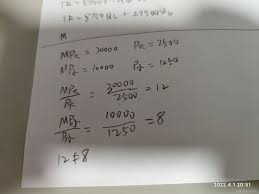 M
MPK = 30000 PK = 2500
MPL = 10000 PL = 1250
MPK/PK = 30000/2500 = 12
MPL/PL = 10000/1250 = 8
12 ≠ 8
2022.4.1 20:51